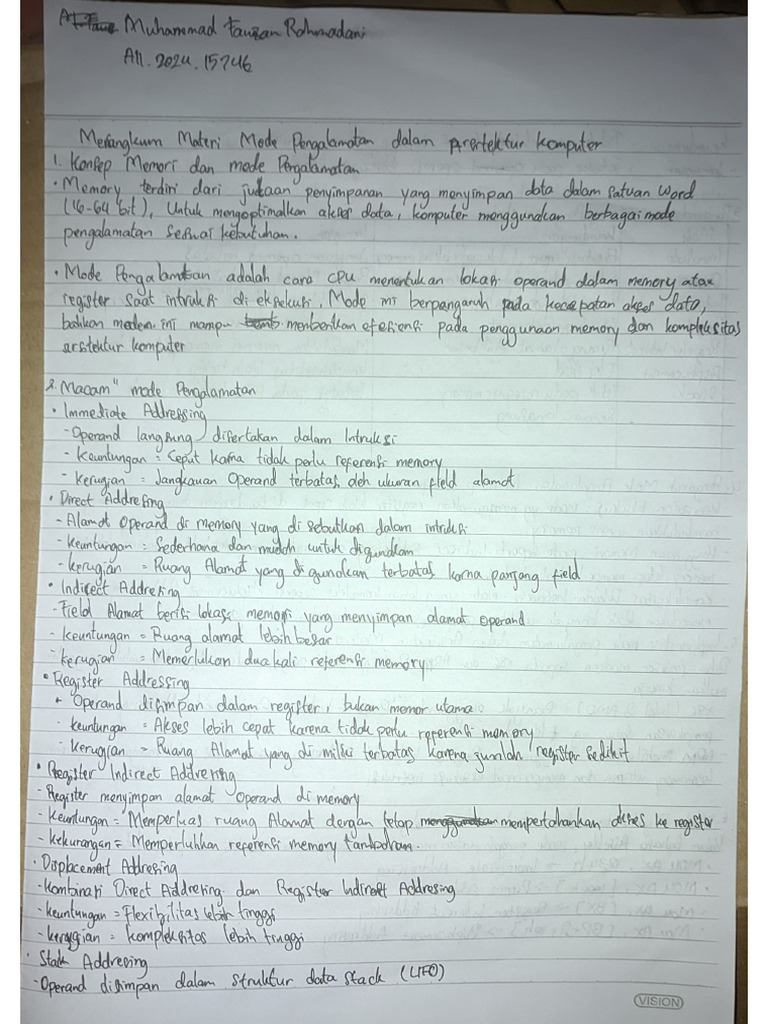 Muhammad Fauzan Rahmadani
A11.2024.15746
Merangkum Materi Mode Pengalamatan dalam Arsitektur Komputer
1. Konsep Memori dan mode Pengalamatan
• Memory terdiri dari jutaan penyimpanan yang menyimpan data dalam satuan Word
(16-64 bit), Untuk mengoptimalkan akses data, komputer menggunakan berbagai mode
pengalamatan sesuai kebutuhan.
• Mode Pengalamatan adalah cara CPU menentukan lokasi operand dalam memory atau
register saat intruksi di eksekusi. Mode ini berpangaruh pada kecepatan akses data,
bahkan modem ini mampu memberikan efesiensi pada penggunaan memory dan kompleksitas
arsitektur komputer
2. Macam" mode Pengalamatan
• Immediate Addressing
- Operand langsung disertakan dalam Intruksi
- Keuntungan = Cepat karna tidak perlu referensi memory
- Kerugian = Jangkauan Operand terbatas oleh ukuran field alamat
• Direct Addresing
- Alamat Operand di memory yang di sebutkan dalam intruksi
- Keuntungan = Sederhana dan mudah untuk digunakan
- Kerugian = Ruang Alamat yang di gunakan terbatas karna panjang field
• Indirect Addresing
- Field Alamat berisi lokasi memori yang menyimpan alamat operand
- Keuntungan = Ruang alamat lebih besar
- Kerugian = Memerlukan dua kali referensi memory
• Register Addressing
- Operand disimpan dalam register, bukan memor utama
- Keuntungan = Akses lebih cepat karena tidak perlu referensi memory
- Kerugian = Ruang Alamat yang di miliki terbatas karena jumlah register sedikit
• Register Indirect Addresing
- Register menyimpan alamat Operand di memory
- Keuntungan = Memperluas ruang Alamat dengan tetap mempertahankan akses ke register
- Kekurangan = Memperlukan referensi memory tambahan.
• Displacement Addresing
- Kombinasi Direct Addresing dan Register Indirect Addresing
- Keuntungan = Flexibilitas lebih tinggi
- Kerugian = Kompleksitas lebih tinggi
• Stack Addresing
- Operand disimpan dalam struktur data stack (LIFO)
VISION